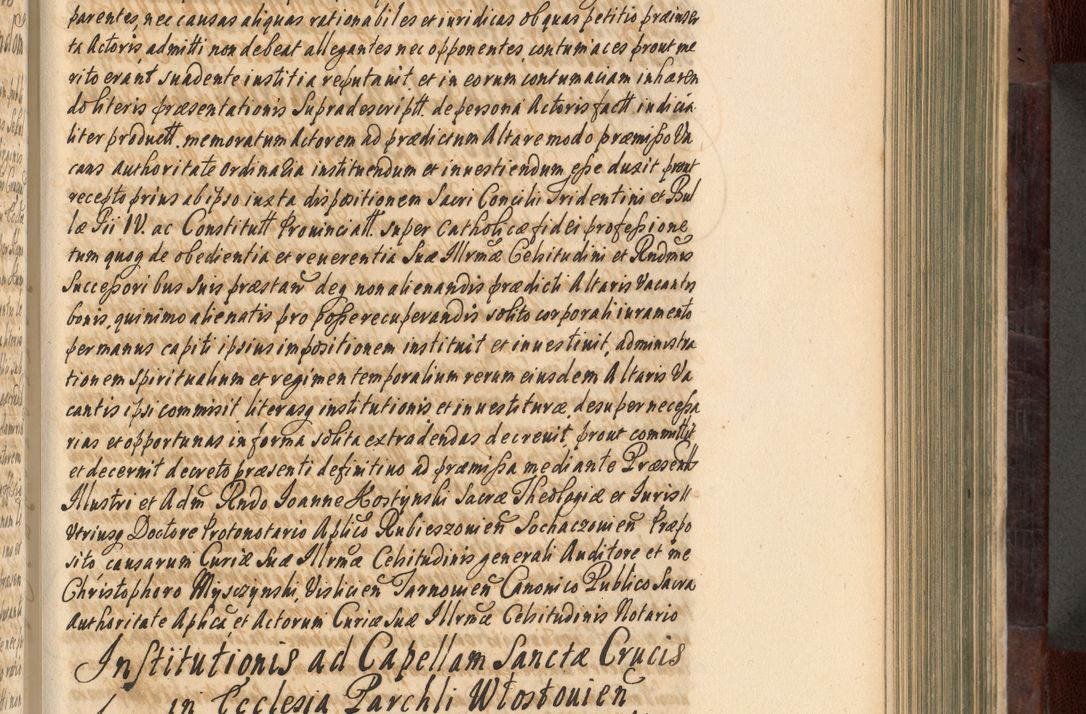 parentes, nec causas aliquas rationabiles et iuridicas ob quas petitis præinser
ta Actoris, admitti non debeat allegantes nec opponentes, contumaces prout me
rito erant suadente iustitia reputauit, et in eorum contumaciam inhæren
do literis præsentationis Supradescriptt. de persona Actoris factt. in dicia
liter productt. memoratum Actorem ad prædictum Altare modo præmisso Va
cans authoritate ordinalia instituendum et inuestiendum esse duxit prout
recepto prius ab ipso iuxta dispositionem Sacri Concilii Tridentini et Bul
læ Pii IV. ac Constitutt Prouinciatt. super Catholicæ fidei professione
tum quoq de obedientia et reuerentia Suæ Illrmæ Celsitudini et Rndmis
Successoribus Suis præstan deq non alienandis prædicti Altaris Vacantis
bonis, quinimo alienatis pro posse recuperandis solito corporali iuramento
per manus capiti ipsius impositionem instituit et inuestiuit, administra
tionem Spiritualium et regimen temporalium rerum eiusdem Altaris Va
cantis ipsi commisit, literasq institutionis et inuestituræ, desuper necessa
rias et opportunas in forma solita extradendas decreuit, prout committit
et decernit decreto præsenti definitiuo ad præmissa mediante Præsentt
Illustri et Adm Rndo Ioanne Hostynski Sacræ Theologiæ et Iuris
Vtriusq Doctore Protonotario Aplico Rubieszouien Sochaczouien Præpo
sito causarum Curiæ Suæ Illrmæ Celsitudinis generali Auditore et me
Christophoro Mysczynski, Vislicien Tarnouien Canonico Publico Sacra
Authoritate Aplica, et Actorum Curiæ Suæ Illrmæ Celsitudinis Notario
Institutionis ad Capellam Sanctæ Crucis
in Ecclesia Parchli Włostouien